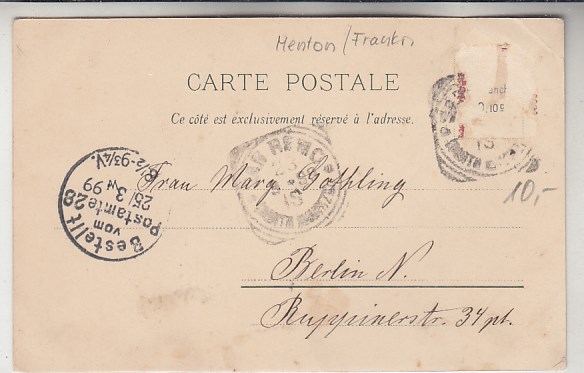 Menton /
CARTE POSTALE
Ce côté est exclusivement réservé à l'adresse.
SAN REMO
23
10,-
Bestellt
vom
Postamte 28
25/3 99
8½-9¾V.
Frau Marg. Gothling
Berlin N.
Ruppinerstr. 34 pt.